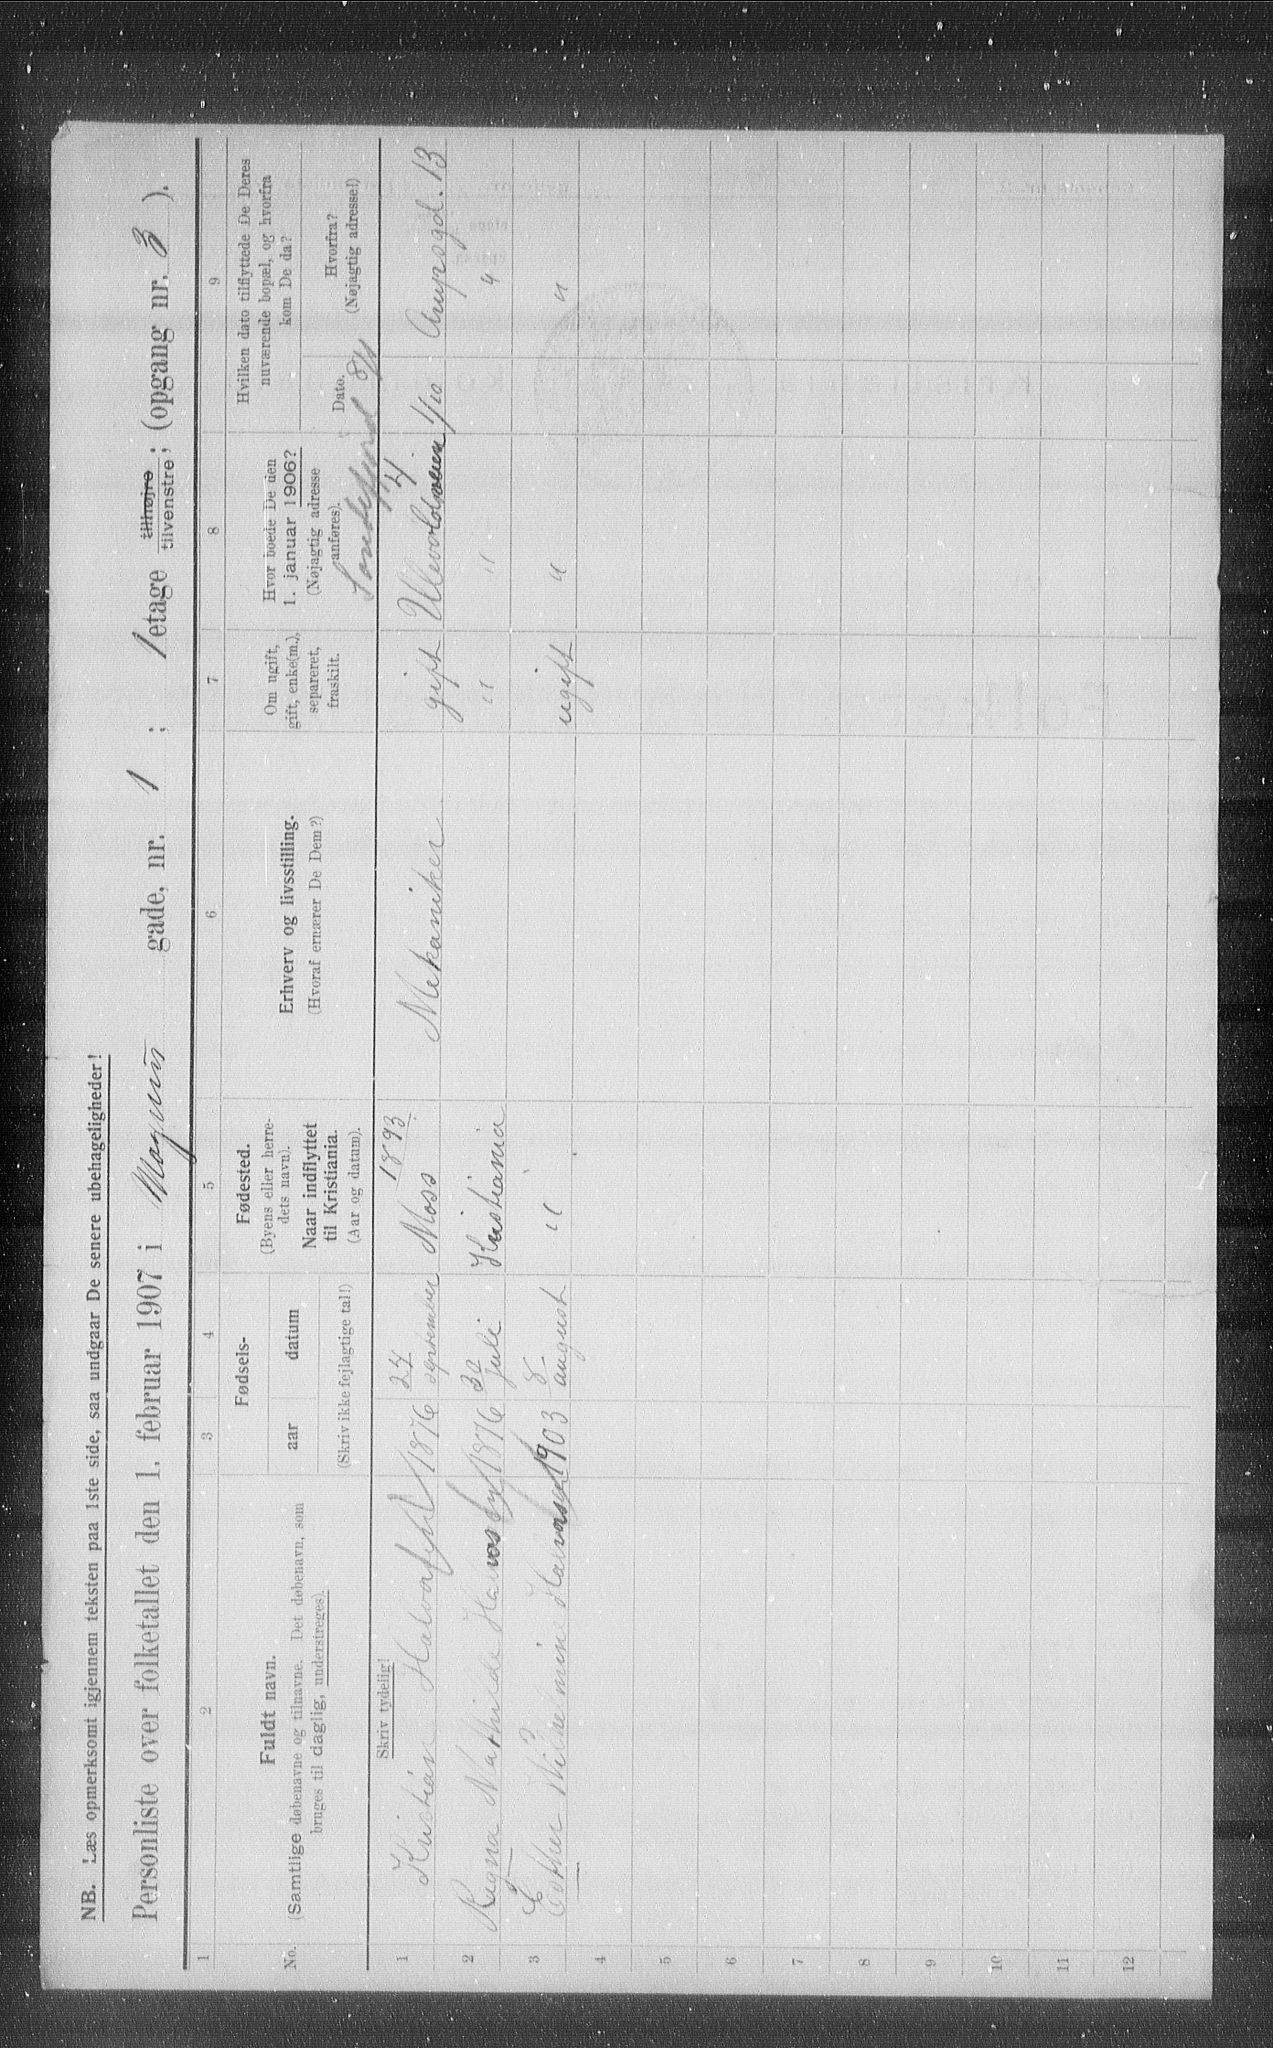 NB. Læs opmerksomt igjennem teksten paa 1ste side, saa undgaar De senere ubehageligheder!
Personliste over folketallet den 1. februar 1907 i Magnus gade, nr. 1 ; 1 etage tilhøjre tilvenstre ; (opgang nr. 3 ).
1 2 3 4 5 6 7 8 9
No.
Fuldt navn.
(Samtlige døbenavne og tilnavne. Det døbenavn, som
bruges til daglig, understreges).
Fødsels-
aar datum
(Skriv ikke fejlagtige tal!)
Fødested.
(Byens eller herre-
dets navn).
Naar indflyttet
til Kristiania.
(Aar og datum).
Erhverv og livsstilling.
(Hvoraf ernærer De Dem?)
Om ugift,
gift, enke(m.),
separeret,
fraskilt.
Hvor boede De den
1. januar 1906?
(Nøjagtig adresse
anføres).
Hvilken dato tilflyttede De Deres
nuværende bopæl, og hvorfra
kom De da?
Dato.
Hvorfra?
(Nøjagtig adresse!)
Skriv tydelig!
1 Kristian 1876 27 september Moss 1893 Mekaniker gift Ullevoldsveien 4 1/10 13
2 Ragna Mathilde 1876 30 juli Kristiania " " "
3 Esther Wilhelmine 1903 8 august " ugift " "
4
5
6
7
8
9
10
11
12